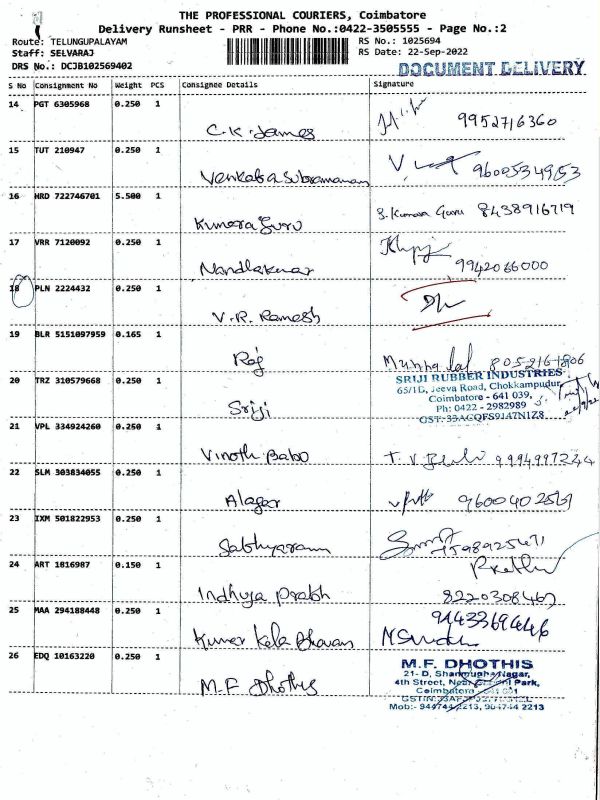 THE PROFESSIONAL COURIERS, Coimbatore
Delivery Runsheet - PRR - Phone No.:0422-3505555 - Page No.:2
Route: TELUNGUPALAYAM RS No.: 1025694
Staff: SELVARAJ RS Date: 22-Sep-2022
DRS No.: DCJB102569402 DOCUMENT DELIVERY
S No Consignment No Weight PCS Consignee Details Signature
14 PGT 6305968 0.250 1
C.K. James 9952716360
15 TUT 210947 0.250 1
Venkata Subramanan 9600534953
16 HRD 722746701 5.500 1
Kumora Guru S. Kumara Guru 8438916719
17 VRR 7120092 0.250 1
Nandhakumar 9942066000
18 PLN 2224432 0.250 1
V.R. Ramesh
19 BLR 5151097959 0.165 1
Raj Munna lal
SRIJI RUBBER INDUSTRIES
20 TRZ 310579668 0.250 1 65/1D, Jeeva Road, Chokkampudur,
Coimbatore - 641 039,
Sriji Ph: 0422 - 2982989
21 VPL 334924260 0.250 1
Vinoth Babo 9994997224
22 SLM 303834055 0.250 1
Alagar
23 IXM 501822953 0.250 1
Sathyaram
24 ART 1816987 0.150 1
Indhuja Prabh 8220308467
25 MAA 294188448 0.250 1
Kumar Kala Bhavan
26 EDQ 10163220 0.250 1 M.F. DHOTHIS
21- D, Shanmugha Nagar,
M.F Dhothis 4th Street, Near Park,
Coimbatore